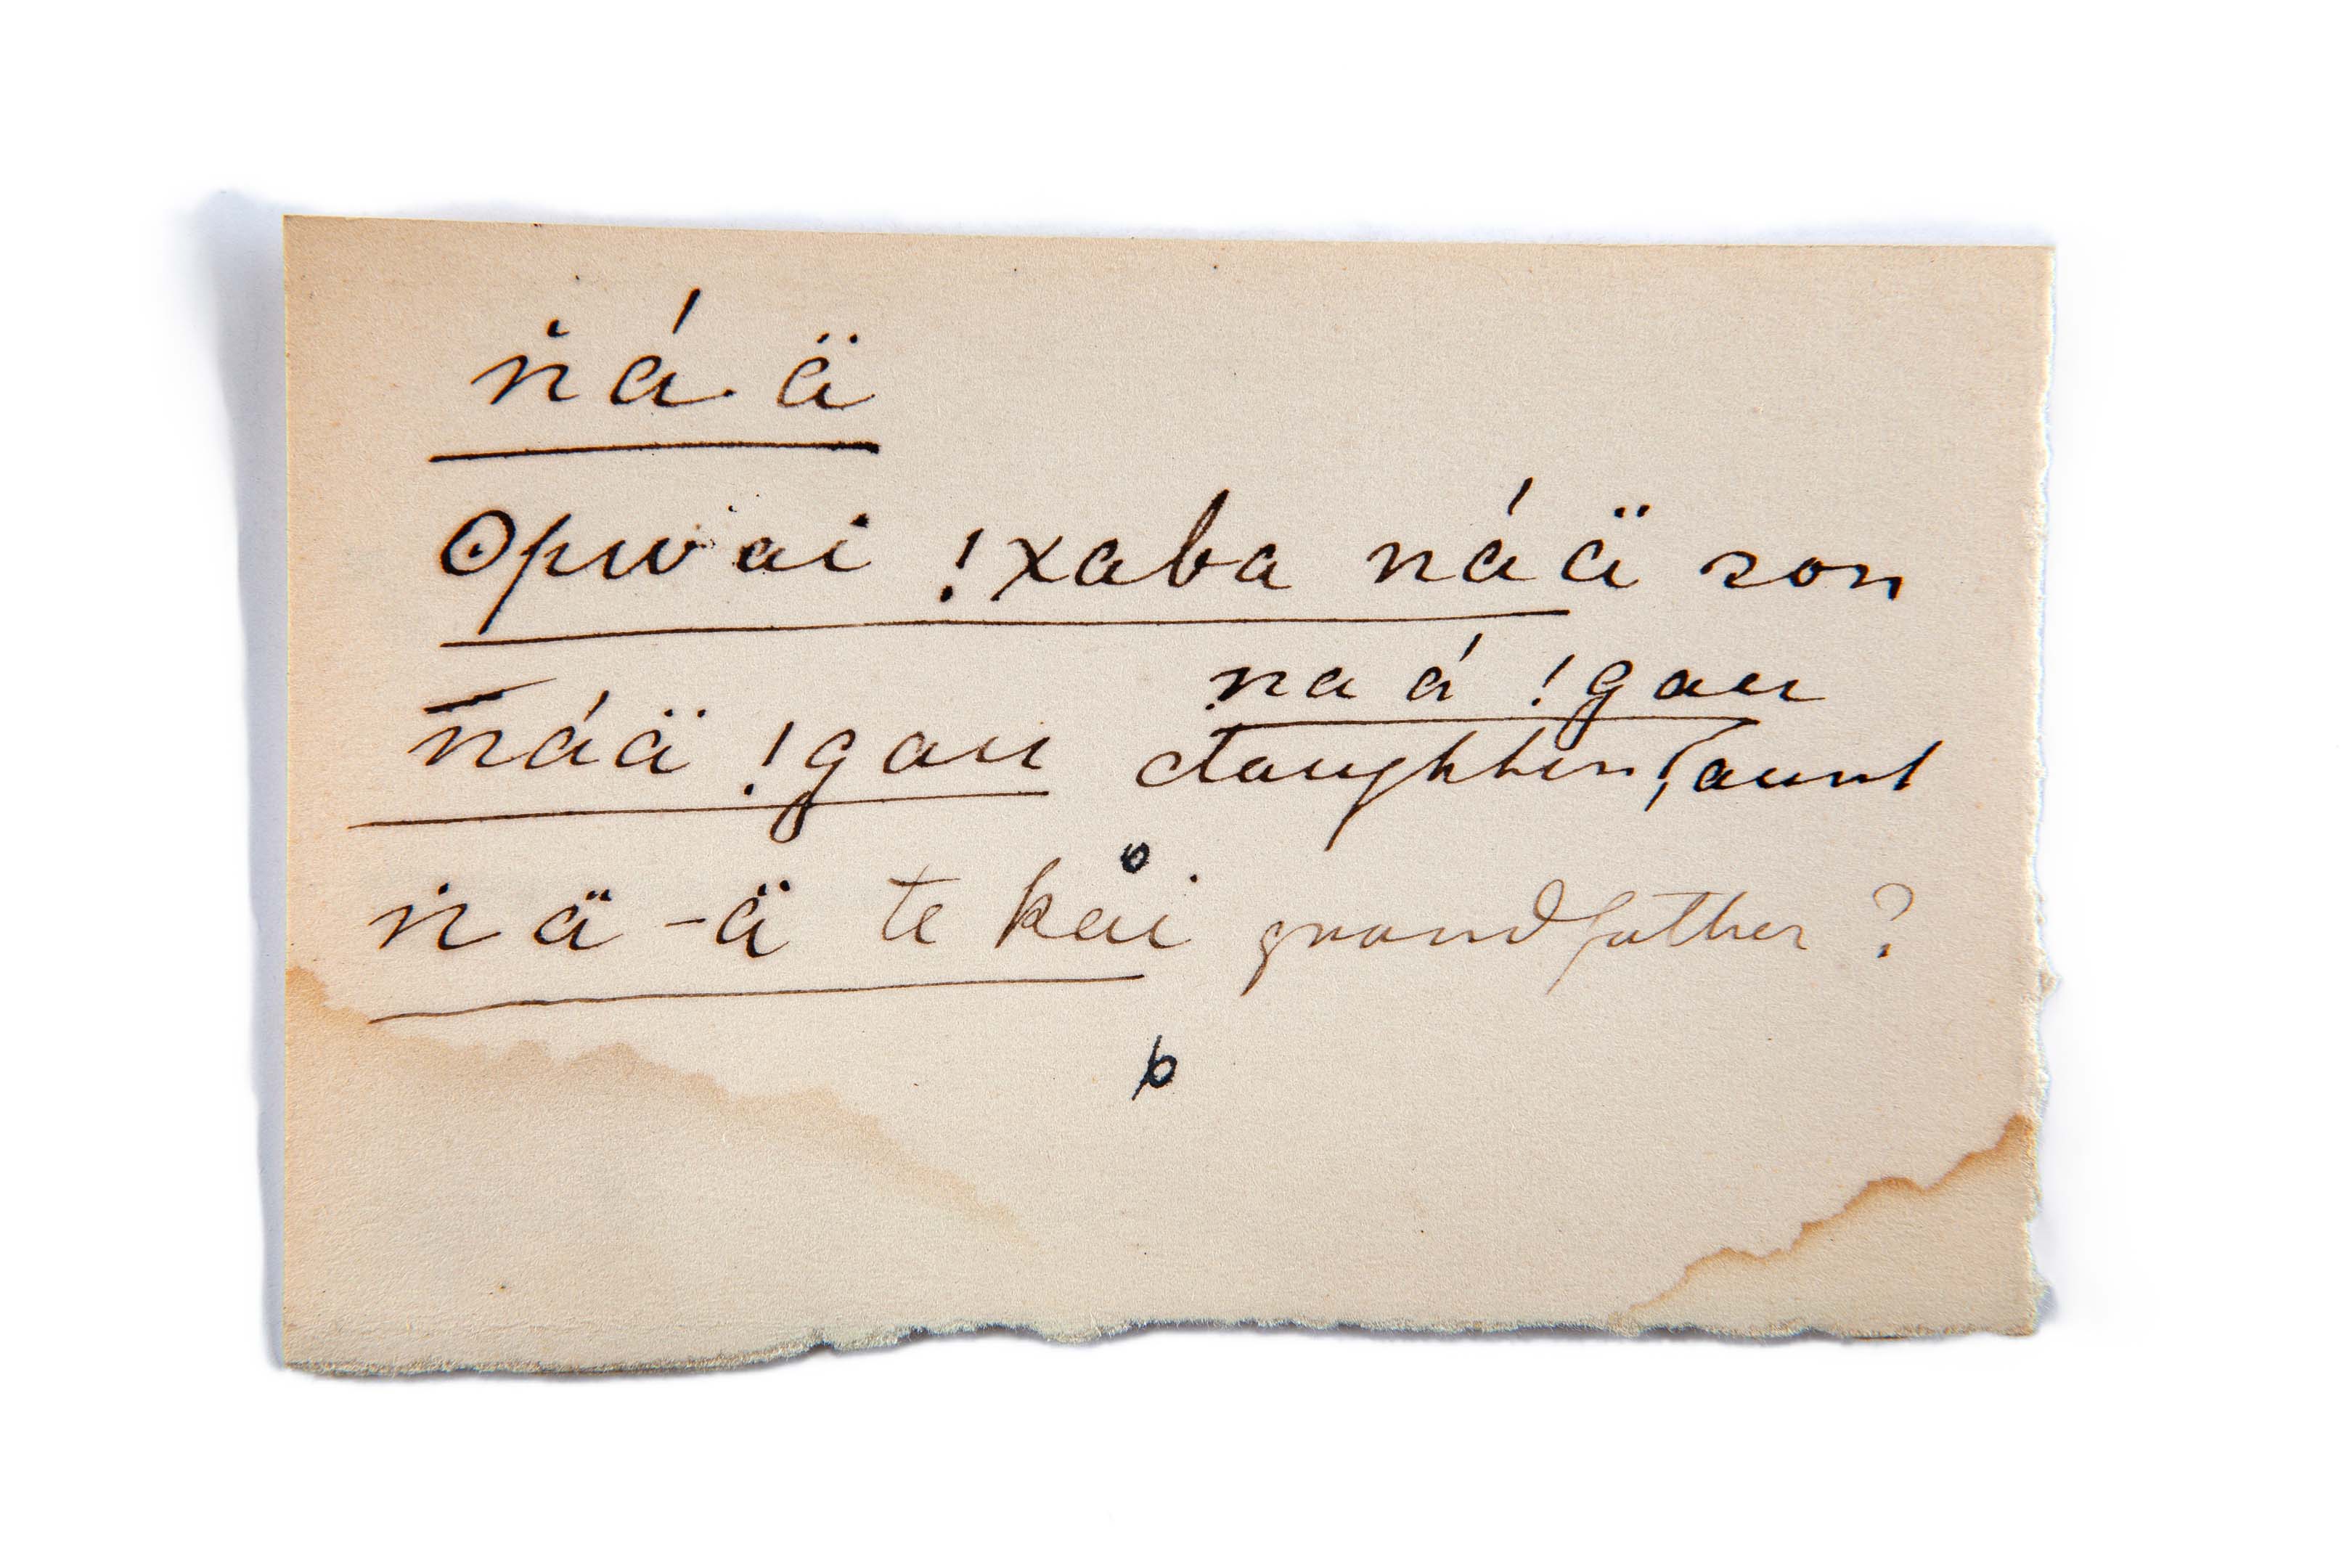 ṅá ä
ʘpwai !xaba náä son
na á !gau
n̄áä !gau daughter, aunt
ṅä-ä te kåi grandfather?
b